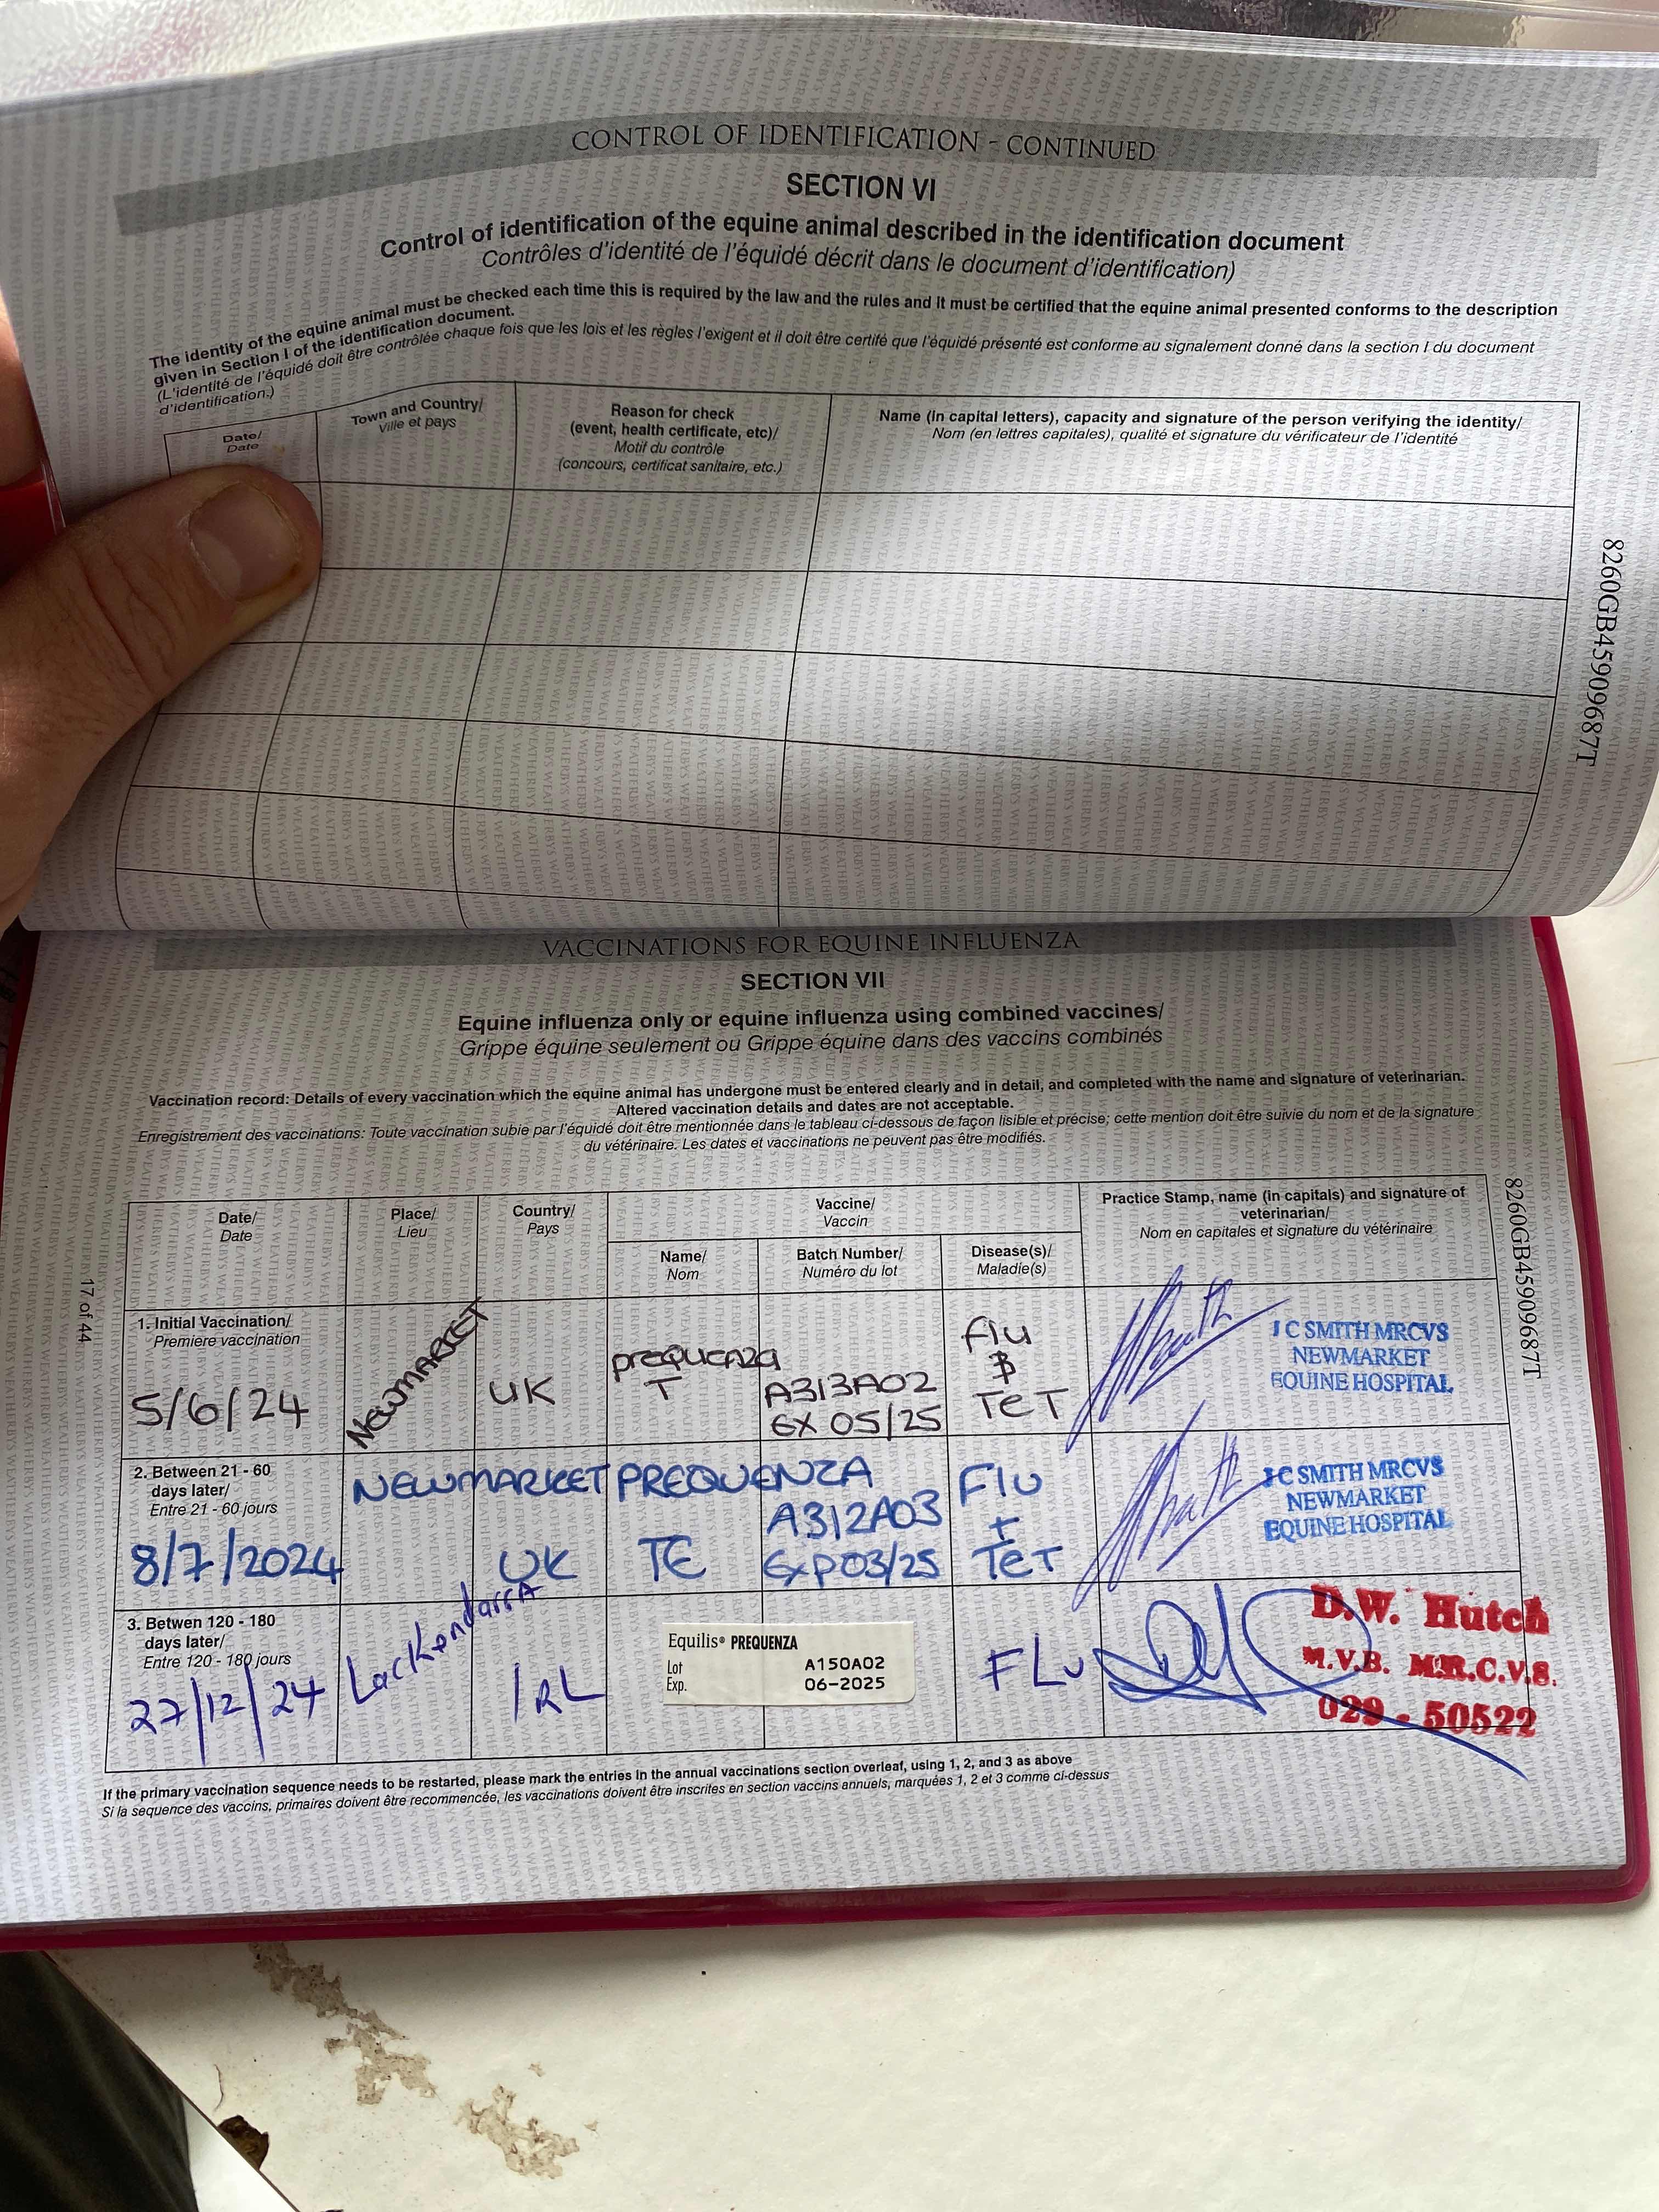 CONTROL OF IDENTIFICATION - CONTINUED
SECTION VI
Control of identification of the equine animal described in the identification document
Contrôles d'identité de l'équidé décrit dans le document d'identification)
The identity of the equine animal must be checked each time this is required by the law and the rules and it must be certified that the equine animal presented conforms to the description
given in Section I of the identification document.
(L'identité de l'équidé doit être contrôlée chaque fois que les lois et les règles l'exigent et il doit être certifé que l'équidé présenté est conforme au signalement donné dans la section I du document
d'identification.)
Date/
Date
Town and Country/
Ville et pays
Reason for check
(event, health certificate, etc)/
Motif du contrôle
(concours, certificat sanitaire, etc.)
Name (in capital letters), capacity and signature of the person verifying the identity/
Nom (en lettres capitales), qualité et signature du vérificateur de l'identité
8260GB45909687T
VACCINATIONS FOR EQUINE INFLUENZA
SECTION VII
Equine influenza only or equine influenza using combined vaccines/
Grippe équine seulement ou Grippe équine dans des vaccins combinés
Vaccination record: Details of every vaccination which the equine animal has undergone must be entered clearly and in detail, and completed with the name and signature of veterinarian.
Altered vaccination details and dates are not acceptable.
Enregistrement des vaccinations: Toute vaccination subie par l'équidé doit être mentionnée dans le tableau ci-dessous de façon lisible et précise; cette mention doit être suivie du nom et de la signature
du vétérinaire. Les dates et vaccinations ne peuvent pas être modifiés.
Date/
Date
Place/
Lieu
Country/
Pays
Vaccine/
Vaccin
Name/
Nom
Batch Number/
Numéro du lot
Disease(s)/
Maladie(s)
Practice Stamp, name (in capitals) and signature of
veterinarian/
Nom en capitales et signature du vétérinaire
8260GB45909687T
17 of 44
1. Initial Vaccination/
Premiere vaccination
5/6/24
NEWMARKET
UK
PREQUENZA
T
A313A02
EX 05/25
Flu
&
TeT
J C SMITH MRCVS
NEWMARKET
EQUINE HOSPITAL
2. Between 21 - 60
days later/
Entre 21 - 60 jours
8/7/2024
NEWMARKET
UK
PREQUENZA
TE
A312A03
EXP03/25
Flu
+
TeT
J C SMITH MRCVS
NEWMARKET
EQUINE HOSPITAL
3. Betwen 120 - 180
days later/
Entre 120 - 180 jours
27/12/24
Lackendarra
IRL
Equilis® PREQUENZA
Lot A150A02
Exp. 06-2025
FLu
D.W. Hutch
M.V.B. M.R.C.V.S.
029 - 50522
If the primary vaccination sequence needs to be restarted, please mark the entries in the annual vaccinations section overleaf, using 1, 2, and 3 as above
Si la sequence des vaccins, primaires doivent être recommencée, les vaccinations doivent être inscrites en section vaccins annuels, marquées 1, 2 et 3 comme ci-dessus